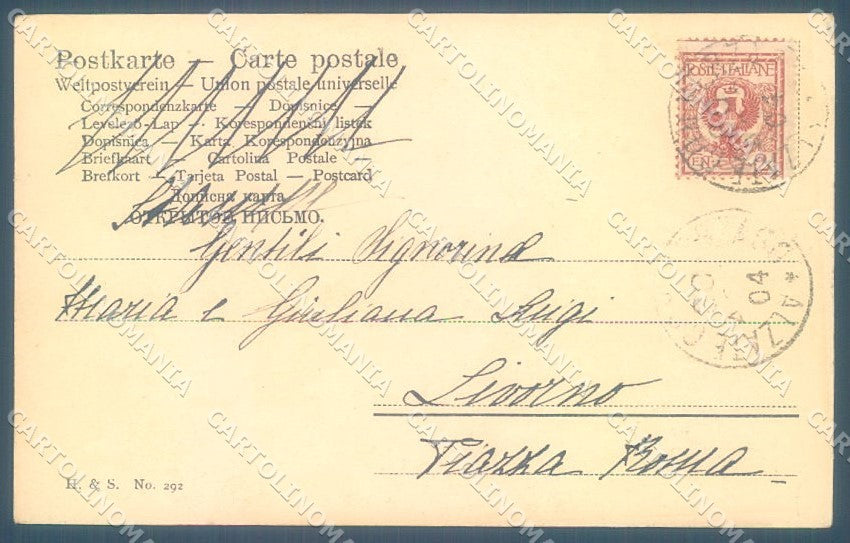 Postkarte — Carte postale
Weltpostverein — Union postale universelle
Correspondenzkarte — Dopisnice —
Levelező-Lap — Korespondenčni listek
Dopisnica — Karta Korespondencyjna
Briefkaart — Cartolina Postale —
Brefkort — Tarjeta Postal — Postcard
Дописна карта
ОТКРЫТОЕ ПИСЬМО.
POSTE ITALIANE
Gentili Signorine
Maria e Giuliana Luigi
Livorno
Piazza Roma
H. & S. No. 292
04
CARTOLINOMANIA